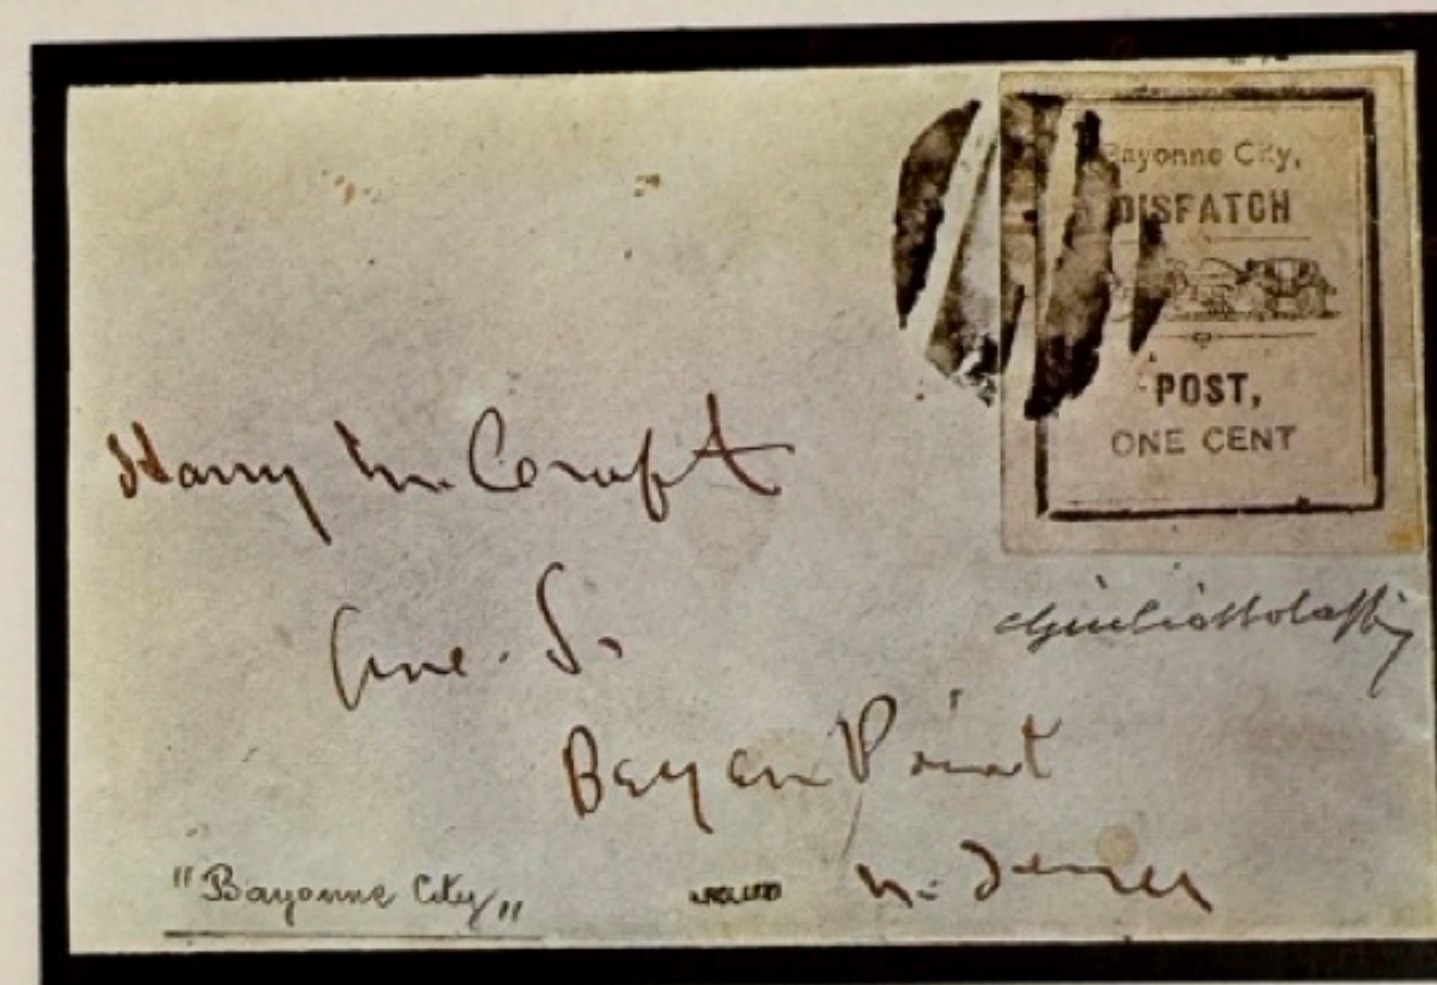 Bayonne City,
DISPATCH
POST,
ONE CENT
Harry M. Croft
Ave. S.
Bergen Point
N. Jersey
"Bayonne City"